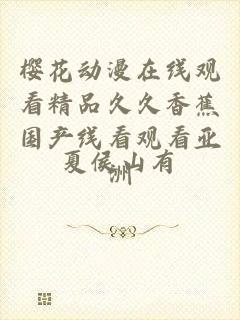 樱花动漫在线观
看精品久久香蕉
国产线看观看亚
洲
夏侯山有